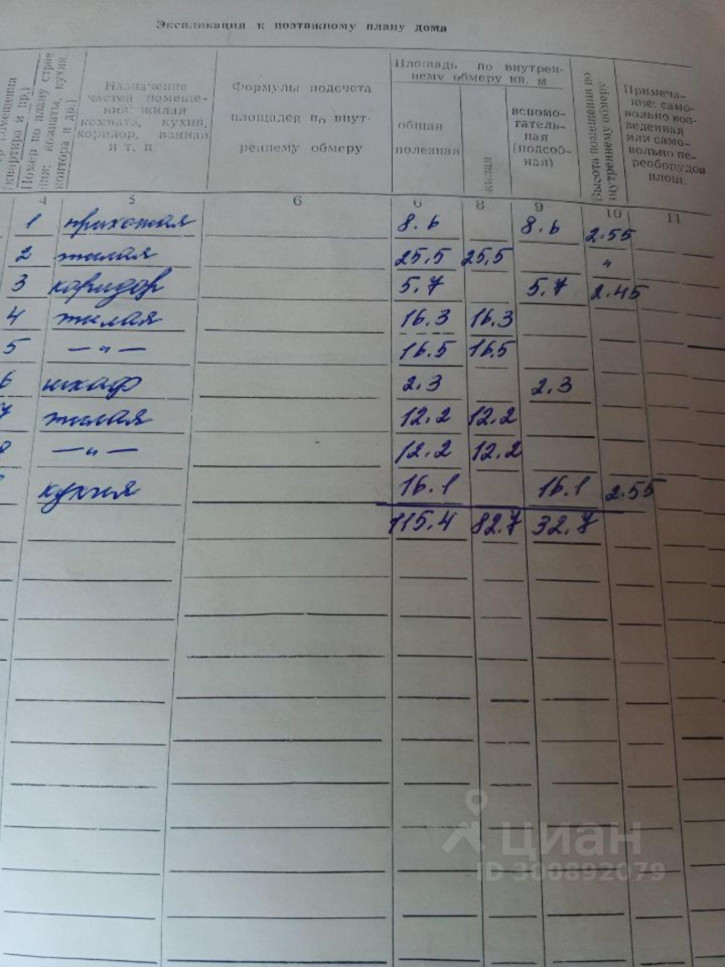 Экспликация к поэтажному плану дома
помещения (квартира и пр.)
Номер по плану строения: комнаты, кухня, контора и др.)
Назначение
частей помеще-
ния: жилая
комната, кухня,
коридор, ванная
и т. п.
Формулы подсчета
площадей по внут-
реннему обмеру
Площадь по внутрен-
нему обмеру кв. м
общая
полезная
жилая
вспомо-
гатель-
ная
(подсоб-
ная)
Высота помещения по
внутреннему обмеру
Примеча-
ние: само-
вольно воз-
веденная
или само-
вольно пе-
реоборудов
площ.
4 5 6 6 8 9 10 11
1 прихожая 8.6 8.6 2.55
2 жилая 25.5 25.5 "
3 коридор 5.7 5.7 2.45
4 жилая 16.3 16.3
5 —"— 16.5 16.5
6 шкаф 2.3 2.3
7 жилая 12.2 12.2
8 —"— 12.2 12.2
кухня 16.1 16.1 2.55
115.4 82.7 32.7
циан
ID 300892079